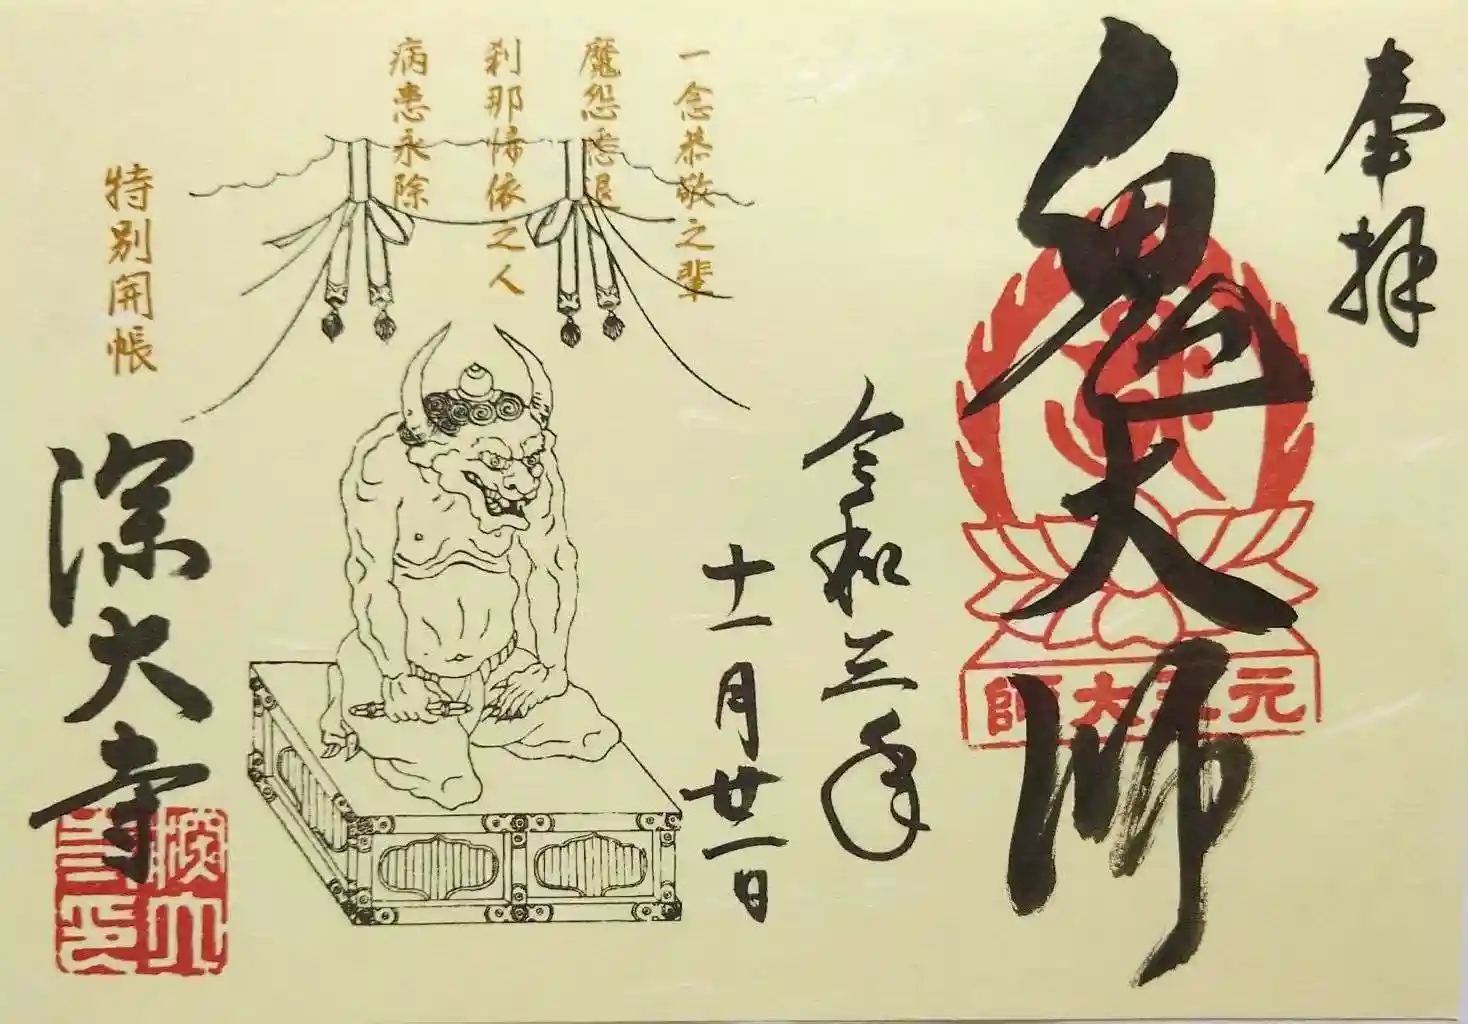 奉拝
鬼大師
元三大師
令和三年
十一月廿一日
一念恭敬之輩
魔怨悉退
刹那帰依之人
病患永除
特別開帳
深大寺